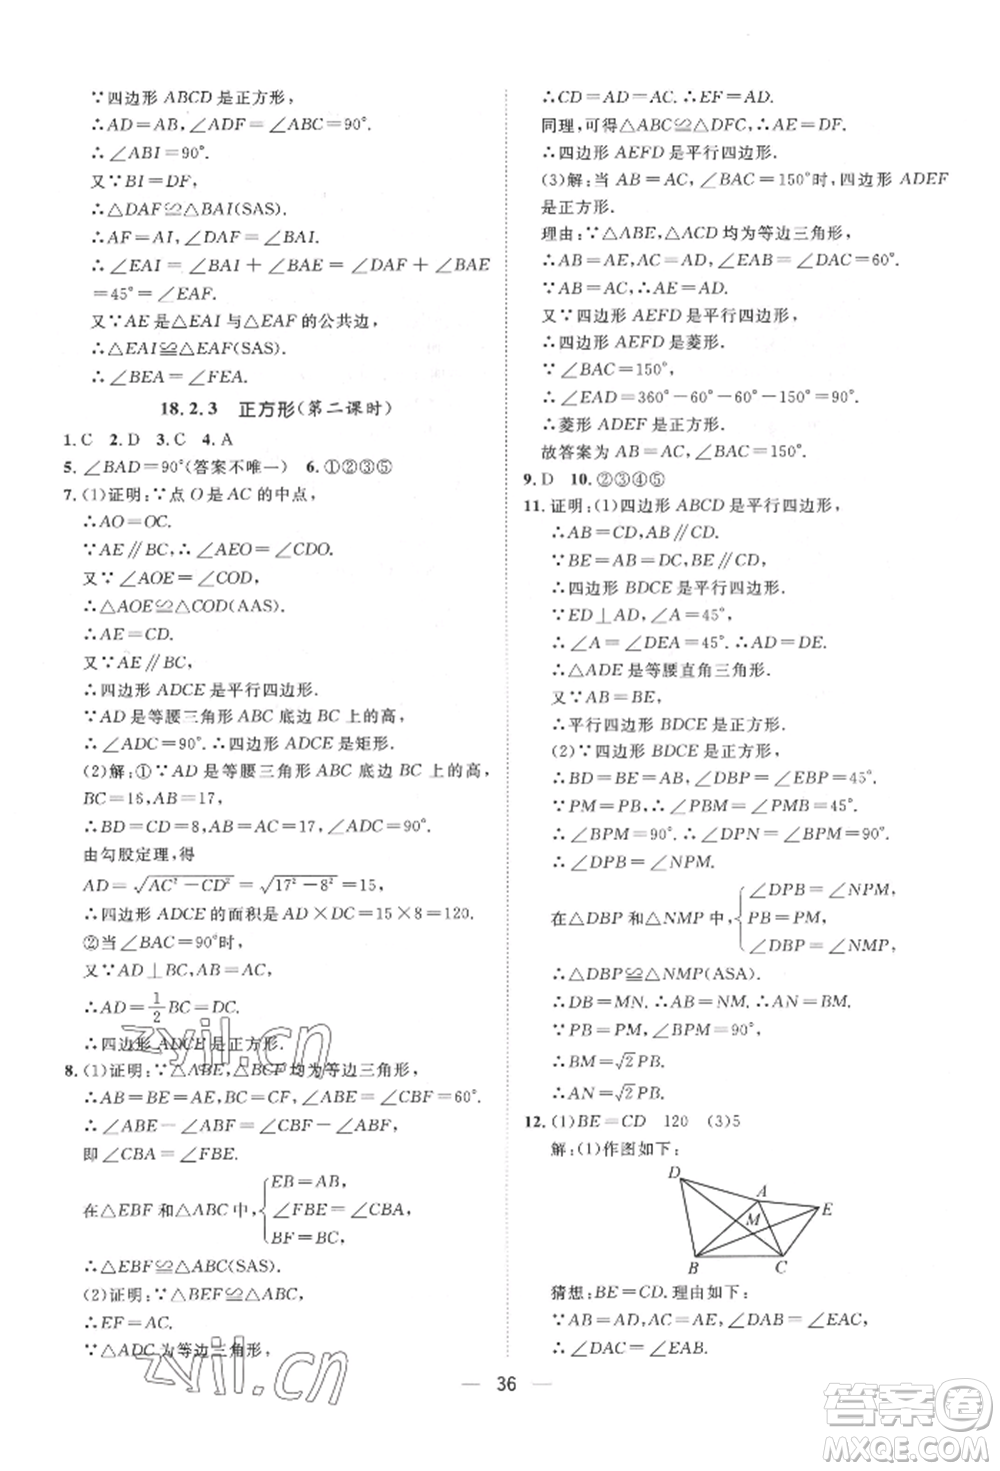 ∵四边形 ABCD 是正方形,
∴AD=AB,∠ADF=∠ABC=90°.
∴∠ABI=90°.
又∵BI=DF,
∴△DAF≌△BAI(SAS).
∴AF=AI,∠DAF=∠BAI.
∴∠EAI=∠BAI+∠BAE=∠DAF+∠BAE
=45°=∠EAF.
又∵AE是△EAI与△EAF的公共边,
∴△EAI≌△EAF(SAS).
∴∠BEA=∠FEA.
18.2.3 正方形(第二课时)
1.C 2.D 3.C 4.A
5.∠BAD=90°(答案不唯一) 6.①②③⑤
7.(1)证明:∵点O是AC的中点,
∴AO=OC.
∵AE∥BC,∴∠AEO=∠CDO.
又∵∠AOE=∠COD,
∴△AOE≌△COD(AAS).
∴AE=CD.
又∵AE∥BC,
∴四边形ADCE是平行四边形.
∵AD是等腰三角形ABC底边BC上的高,
∴∠ADC=90°.∴四边形ADCE是矩形.
(2)解:①∵AD是等腰三角形ABC底边BC上的高,
BC=16,AB=17,
∴BD=CD=8,AB=AC=17,∠ADC=90°.
由勾股定理,得
AD=√(AC²-CD²)=√(17²-8²)=15,
∴四边形ADCE的面积是AD×DC=15×8=120.
②当∠BAC=90°时,
又∵AD⊥BC,AB=AC,
∴AD=1/2BC=DC.
∴四边形ADCE是正方形.
8.(1)证明:∵△ABE,△BCF均为等边三角形,
∴AB=BE=AE,BC=CF,∠ABE=∠CBF=60°.
∴∠ABE-∠ABF=∠CBF-∠ABF,
即∠CBA=∠FBE.
在△EBF和△ABC中,{EB=AB,
∠FBE=∠CBA,
BF=BC,
∴△EBF≌△ABC(SAS).
(2)证明:∵△BEF≌△BAC,
∴EF=AC.
∵△ADC为等边三角形,
∴CD=AD=AC.∴EF=AD.
同理,可得△ABC≌△DFC,∴AE=DF.
∴四边形AEFD是平行四边形.
(3)解:当AB=AC,∠BAC=150°时,四边形ADEF
是正方形.
理由:∵△ABE,△ACD均为等边三角形,
∴AB=AE,AC=AD,∠EAB=∠DAC=60°.
∵AB=AC,∴AE=AD.
又∵四边形AEFD是平行四边形,
∴四边形AEFD是菱形.
∵∠BAC=150°,
∴∠EAD=360°-60°-60°-150°=90°.
∴菱形ADEF是正方形.
故答案为AB=AC,∠BAC=150°.
9.D 10.②③④⑤
11.证明:(1)四边形ABCD是平行四边形,
∴AB=CD,AB∥CD.
∵BE=AB,∴BE=DC,BE∥CD.
∴四边形BDCE是平行四边形.
∵ED⊥AD,∠A=45°,
∴∠A=∠DEA=45°.∴AD=DE.
∴△ADE是等腰直角三角形.
又∵AB=BE,
∴平行四边形BDCE是正方形.
(2)∵四边形BDCE是正方形,
∴BD=BE=CE,∠DBP=∠PBE=45°.
∵PM=PB,∴∠PBM=∠PMB=45°.
∴∠BPM=90°.∴∠DPN=∠BPM=90°.
∴∠DPB=∠NPM.
在△DBP和△NMP中,{∠DPB=∠NPM,
PB=PM,
∠DBP=∠NMP,
∴△DBP≌△NMP(ASA).
∴DB=MN.∴AB=MN.∴AN=BM.
∵PB=PM,∠BPM=90°,
∴BM=√2PB.
∴AN=√2PB.
12.(1)BE=CD 120 (3)5
解:(1)作图如下:
D
A
M
E
B
C
猜想:BE=CD.理由如下:
∵AB=AD,AC=AE,∠DAB=∠EAC,
∴∠DAC=∠EAB.
36
zyjl.cn
zyjl.cn
答案圈
MXQE.COM